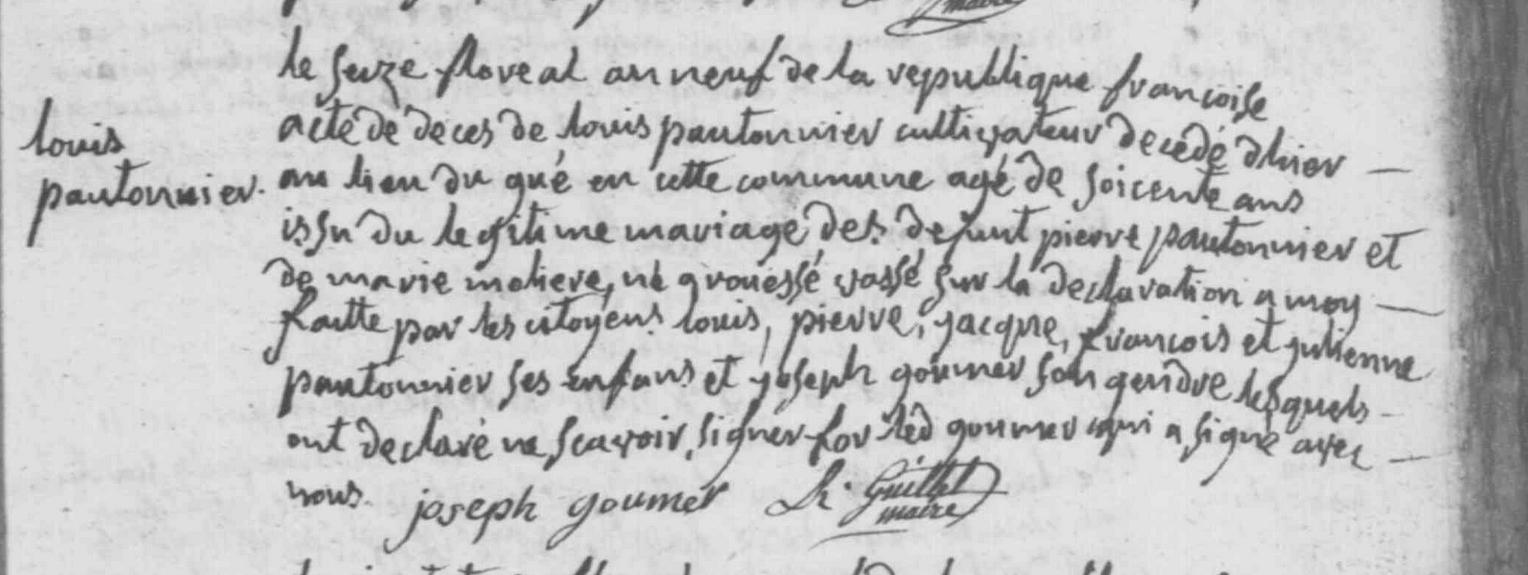 maire
le seize floreal an neuf de la republique francoise
acte de deces de louis pautonnier cultivateur decedé d'hier
louis
pautonnier.
au lieu du gué en cette commune agé de soicente ans
issu du legitime mariage des defunt pierre pautonnier et
de marie moliere, né grouessé vassé sur la declaration a moy
faitte par les citoyens louis, pierre, jacque, francois et julienne
pautonnier ses enfans et joseph goumer son gendre lesquels
ont declaré ne scavoir signer for led goumer qui a signé avec
nous. joseph goumer R. Guillet
maire